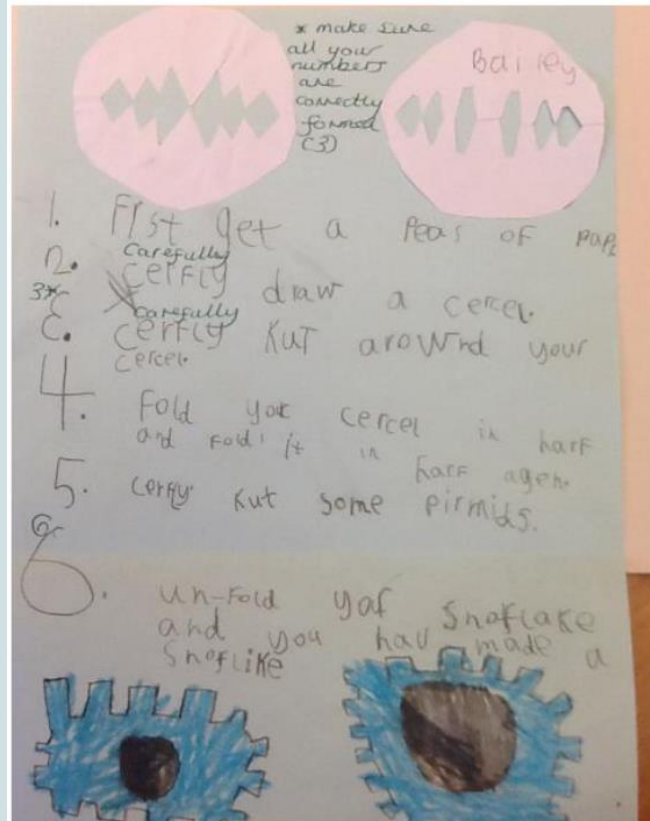 * make sure
all your
numbers
are
correctly
formed
(3)
Bailey
1. First get a Peas of pape
2. carefully
cerfly draw a cercel.
3* carefully
3. cerfly kut arowrnd your
cercel.
4. Fold your cercel in harf
and fold it in harf agen.
5. cerfly kut some pirmids.
6
6. un-Fold yor Snoflake
and you hav made a
Snoflike